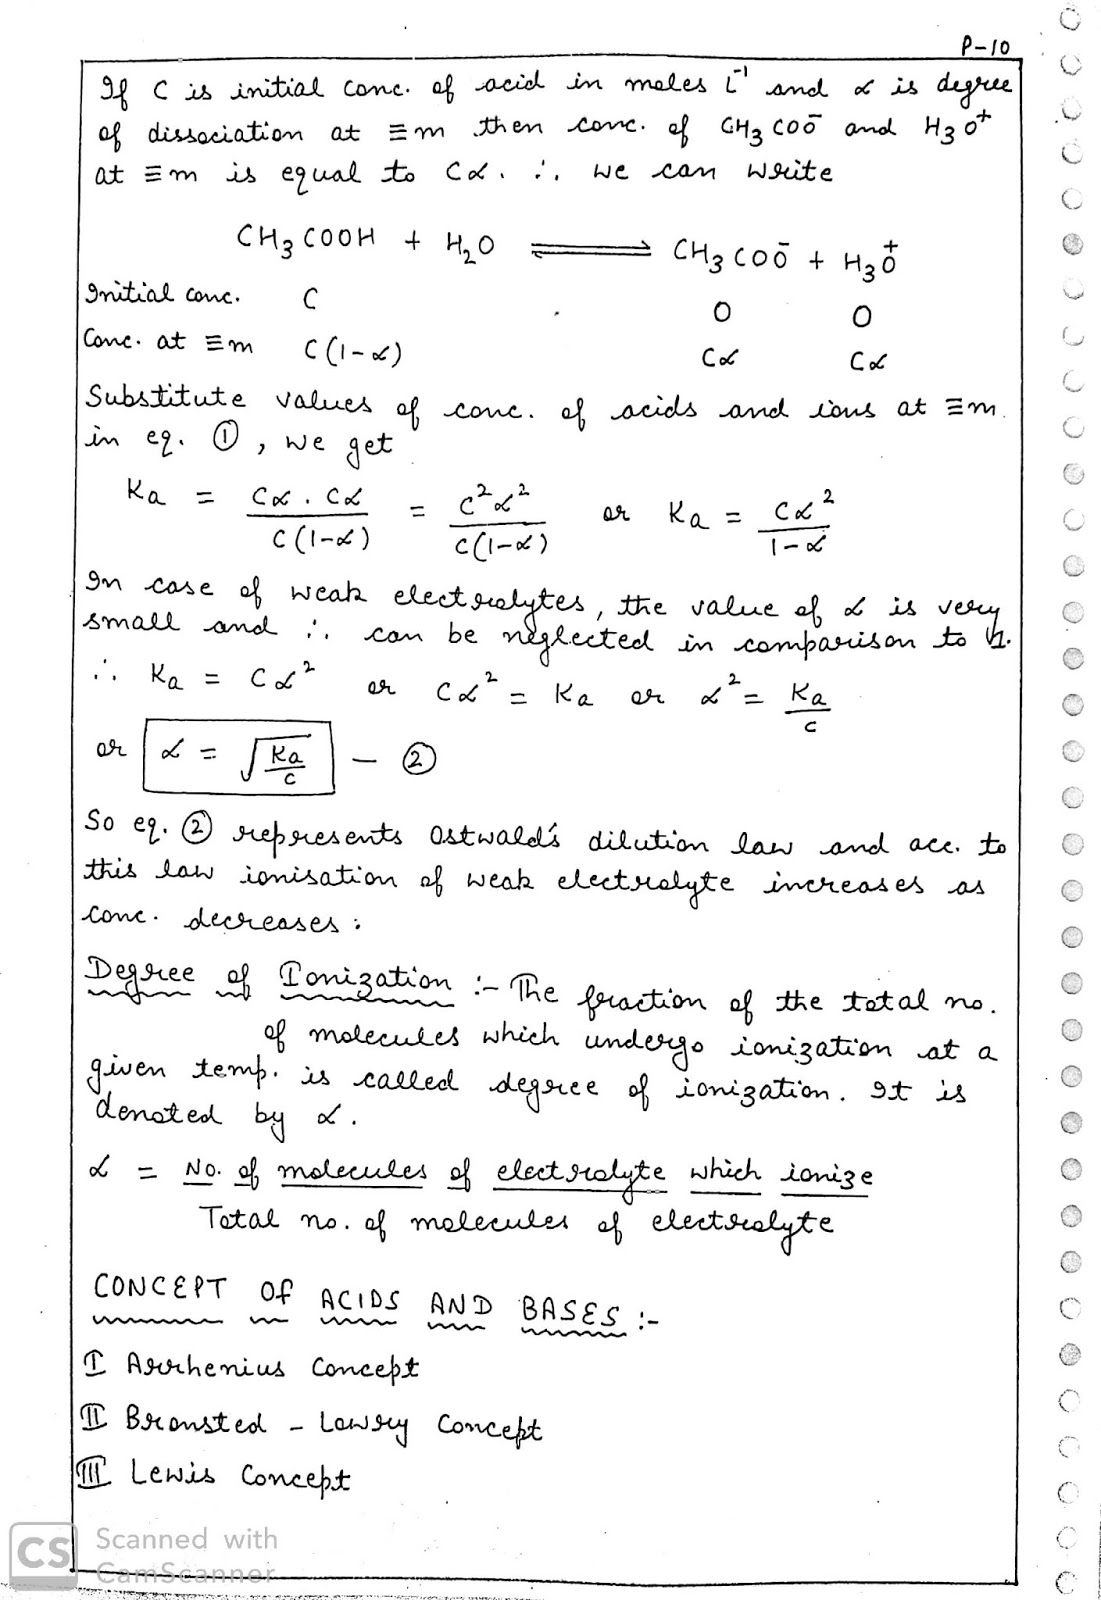 P-10
If C is initial conc. of acid in moles L⁻¹ and α is degree
of dissociation at ≡m then conc. of CH₃COO⁻ and H₃O⁺
at ≡m is equal to Cα. ∴ we can write
CH₃COOH + H₂O ⇌ CH₃COO⁻ + H₃O⁺
Initial conc. C 0 0
Conc. at ≡m C(1-α) Cα Cα
Substitute values of conc. of acids and ions at ≡m
in eq. ①, we get
Ka = Cα . Cα / C(1-α) = C²α² / C(1-α) or Ka = Cα² / 1-α
In case of weak electrolytes, the value of α is very
small and ∴ can be neglected in comparison to 1.
∴ Ka = Cα² or Cα² = Ka or α² = Ka / C
or α = √Ka/C - ②
So eq. ② represents Ostwald's dilution law and acc. to
this law ionisation of weak electrolyte increases as
conc. decreases :
Degree of Ionization :- The fraction of the total no.
of molecules which undergo ionization at a
given temp. is called degree of ionization. It is
denoted by α.
α = No. of molecules of electrolyte which ionize
Total no. of molecules of electrolyte
CONCEPT OF ACIDS AND BASES :-
I Arrhenius Concept
II Bronsted - Lowry Concept
III Lewis Concept
CS Scanned with
CamScanner